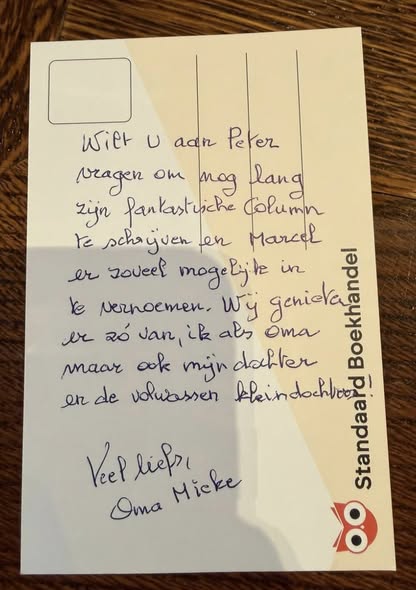 Wilt U aan Peter
vragen om nog lang
zijn fantastische Column
te schrijven en Marcel
er zoveel mogelijk in
te vernoemen. Wij genieten
er zó van, ik als oma
maar ook mijn dochter
en de volwassen kleindochter!
Veel liefs,
Oma Mieke
Standaard Boekhandel